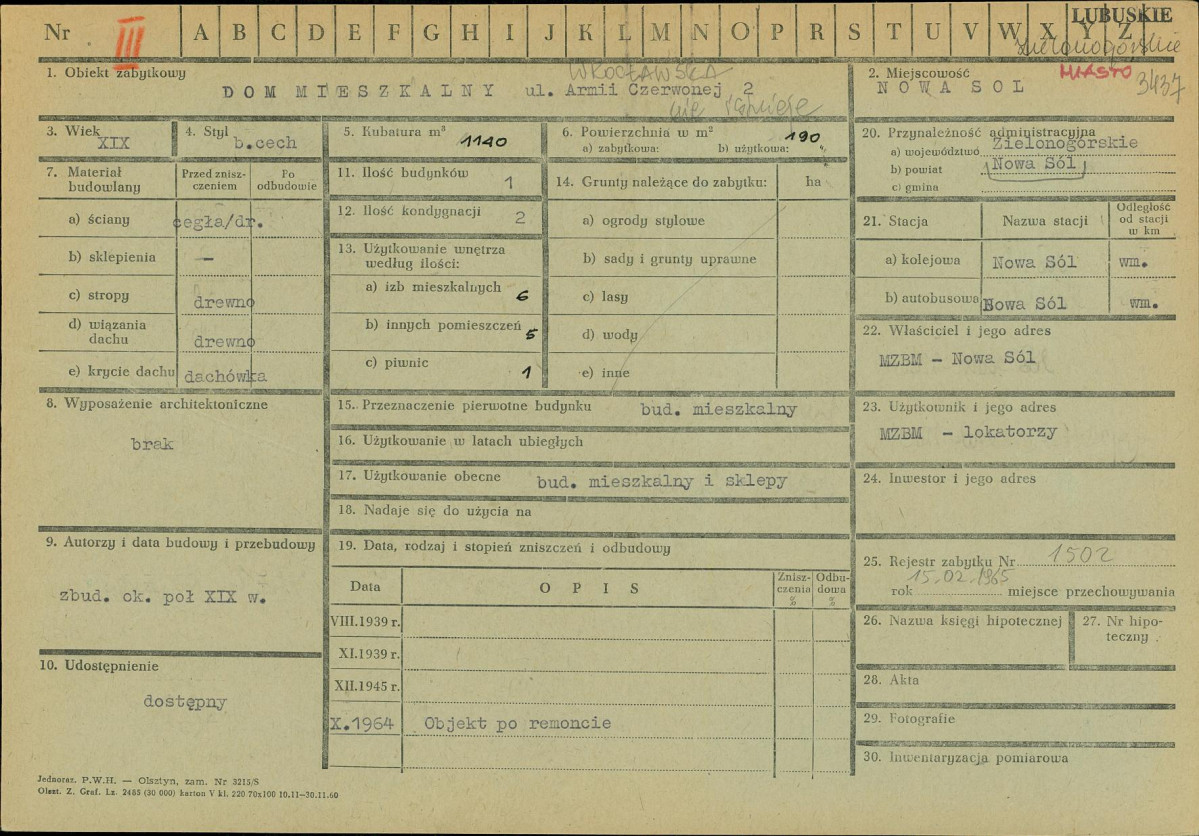 Nr III A B C D E F G H I J K L M N O P R S T U V W X Y Z LUBUSKIE
Zielonogórskie
1. Obiekt zabytkowy
WROCŁAWSKA
DOM MIESZKALNY ul. Armii Czerwonej 2
nie istnieje
2. Miejscowość MIASTO 3437
NOWA SOL
3. Wiek
XIX
4. Styl
b.cech
5. Kubatura m³ 1140
6. Powierzchnia w m² 190
a) zabytkowa: b) użytkowa:
7. Materiał budowlany
Przed zniszczeniem
Po odbudowie
a) ściany cegła/dr.
b) sklepienia —
c) stropy drewno
d) wiązania dachu drewno
e) krycie dachu dachówka
8. Wyposażenie architektoniczne
brak
9. Autorzy i data budowy i przebudowy
zbud. ok. poł XIX w.
10. Udostępnienie
dostępny
11. Ilość budynków 1
12. Ilość kondygnacji 2
13. Użytkowanie wnętrza
według ilości:
a) izb mieszkalnych 6
b) innych pomieszczeń 5
c) piwnic 1
14. Grunty należące do zabytku: ha
a) ogrody stylowe
b) sady i grunty uprawne
c) lasy
d) wody
e) inne
15. Przeznaczenie pierwotne budynku bud. mieszkalny
16. Użytkowanie w latach ubiegłych
17. Użytkowanie obecne bud. mieszkalny i sklepy
18. Nadaje się do użycia na
19. Data, rodzaj i stopień zniszczeń i odbudowy
Data OPIS Zniszczenia % Odbudowa %
VIII.1939 r.
XI.1939 r.
XII.1945 r.
X.1964 Objekt po remoncie
20. Przynależność administracyjna
a) województwo Zielonogórskie
b) powiat Nowa Sól
c) gmina
21. Stacja Nazwa stacji Odległość od stacji w km
a) kolejowa Nowa Sól wm.
b) autobusowa Nowa Sól wm.
22. Właściciel i jego adres
MZBM - Nowa Sól
23. Użytkownik i jego adres
MZBM - lokatorzy
24. Inwestor i jego adres
25. Rejestr zabytku Nr 1502
15.02.1965
rok miejsce przechowywania
26. Nazwa księgi hipotecznej
27. Nr hipoteczny
28. Akta
29. Fotografie
30. Inwentaryzacja pomiarowa
Jednoraz. P.W.H. — Olsztyn, zam. Nr 3215/S
Olszt. Z. Graf. Lz. 2485 (30 000) karton V kl. 220 70x100 10.11—30.11.60